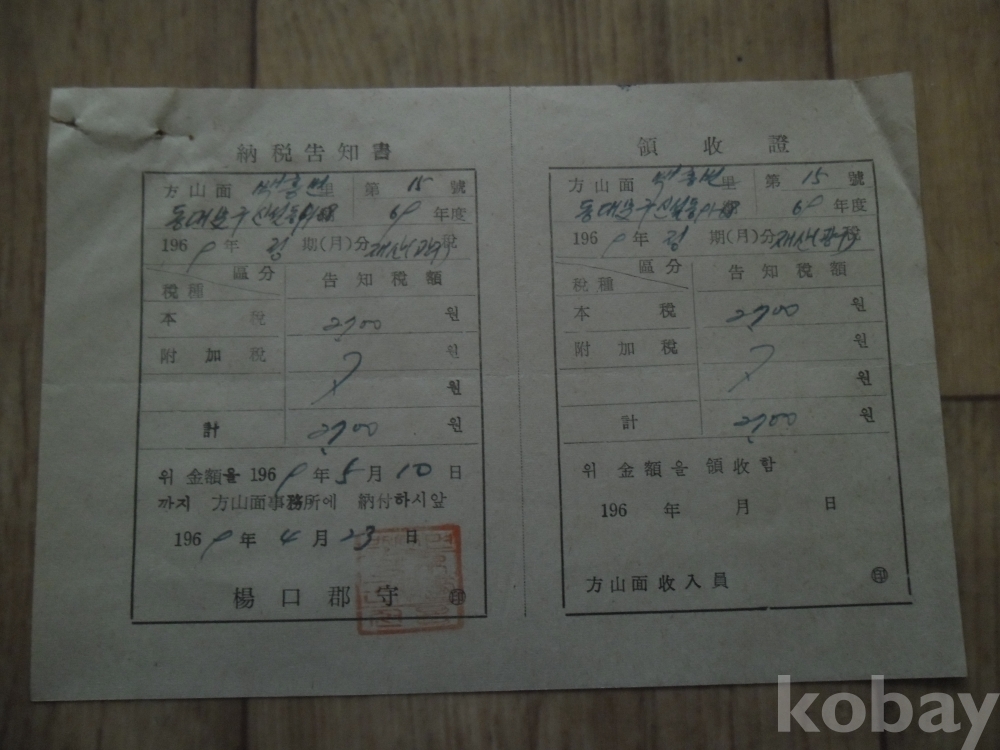 納税告知書
方山面 里 第 15 號
동대문구 신설동 69 年度
196 9 年 정 期(月)分 재산 稅
區分
稅種
告知稅額
本 稅 2700 원
附加稅 원
원
計 2700 원
위 金額을 196 9 年 5 月 10 日
까지 方山面事務所에 納付하시앞
196 9 年 4 月 23 日
楊口郡守 ㊞
領收證
方山面 里 第 15 號
동대문구 신설동 69 年度
196 9 年 정 期(月)分 재산 稅
區分
稅種
告知稅額
本 稅 2700 원
附加稅 원
원
計 2700 원
위 金額을 領收함
196 年 月 日
方山面收入員 ㊞
kobay